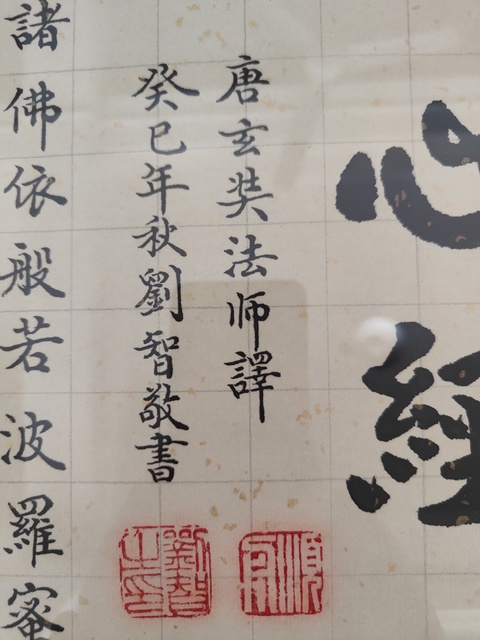 心經
唐玄奘法师譯
癸巳年秋劉智敬書
劉智之印
諸佛依般若波羅蜜